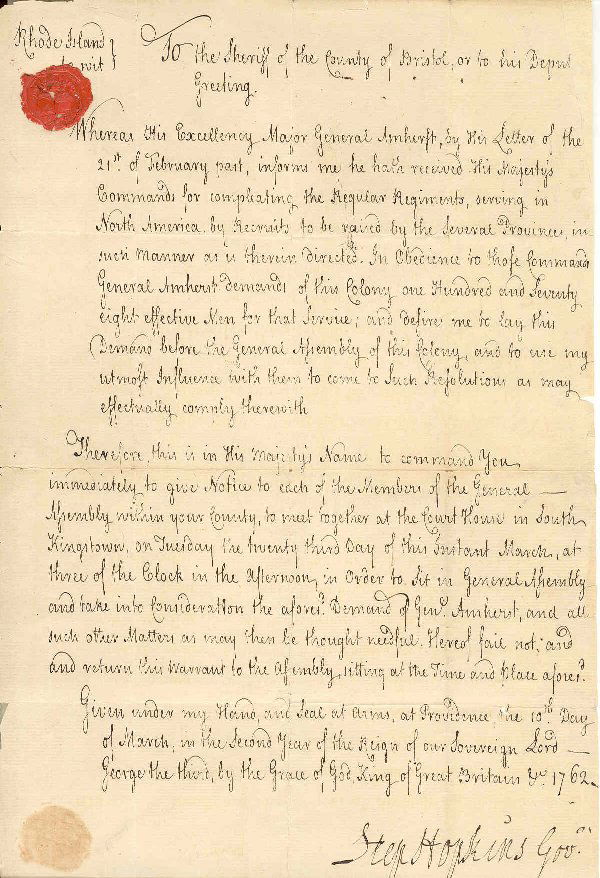 Rhode Island
to wit
To the Sheriff of the County of Bristol, or to his Deputy
Greeting.
Whereas His Excellency Major General Amherst, by His Letter of the
21st of February past, informs me he hath received His Majesty's
Commands for compleating the Regular Regiments, serving in
North America, by Recruits to be raised by the Several Provinces, in
such Manner as is therein directed. In Obedience to those Commands
General Amherst demands of this Colony one Hundred and Seventy
eight effective Men for that Service; and desires me to lay this
Demand before the General Assembly of this Colony, and to use my
utmost Influence with them to come to Such Resolutions as may
effectually comply therewith
Therefore, this is in His Majesty's Name to command You
immediately to give Notice to each of the Members of the General
Assembly within your County, to meet together at the Court House in South
Kingstown, on Tuesday the twenty third Day of this Instant March, at
three of the Clock in the Afternoon, in Order to Sit in General Assembly
and take into Consideration the aforesd. Demand of Genl. Amherst, and all
such other Matters as may then be thought needful. Hereof fail not, and
and return this Warrant to the Assembly, sitting at the Time and Place aforesd.
Given under my Hand, and Seal at Arms, at Providence the 10th Day
of March, in the Second Year of the Reign of our Sovereign Lord
George the third, by the Grace of God, King of Great Britain &c. 1762.
Step Hopkins Govr.